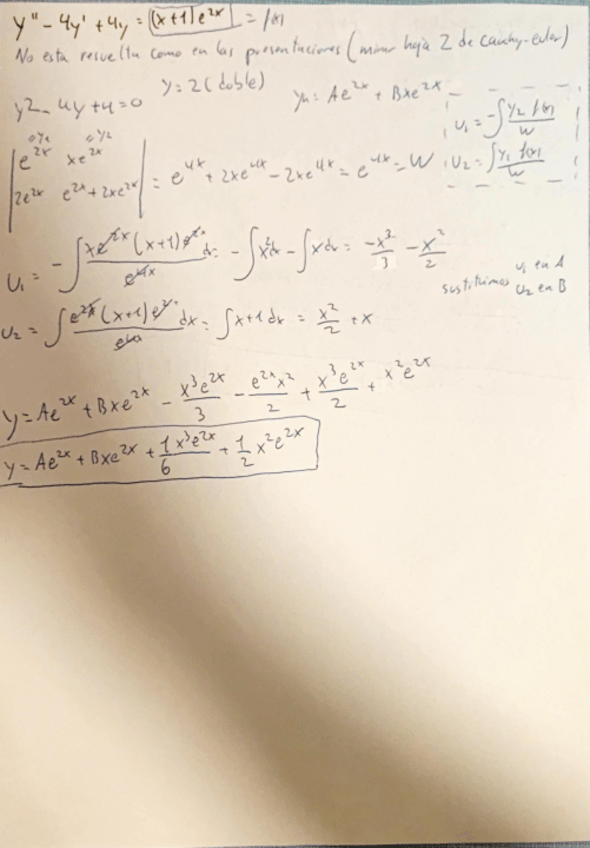 y'' - 4y' + 4y = (x+1)e^{2x} = f(x)
No esta resuelta como en las presentaciones (mirar hoja 2 de cauchy-euler)
y² - 4y + 4 = 0   y = 2 (doble)   yₕ = Ae^{2x} + Bxe^{2x}
u₁ = -∫ y₂ f(x) / W
y₁   y₂
| e^{2x}   xe^{2x} |
| 2e^{2x}   e^{2x} + 2xe^{2x} | = e^{4x} + 2xe^{4x} - 2xe^{4x} = e^{4x} = W   u₂ = ∫ y₁ f(x) / W
u₁ = -∫ xe^{2x}(x+1)e^{2x} / e^{4x} dx = -∫x²dx - ∫xdx = -x³/3 - x²/2
sustituimos u₁ en A
u₂ en B
u₂ = ∫ e^{2x}(x+1)e^{2x} / e^{4x} dx = ∫x+1 dx = x²/2 + x
y = Ae^{2x} + Bxe^{2x} - x³e^{2x}/3 - e^{2x}x²/2 + x³e^{2x}/2 + x²e^{2x}
y = Ae^{2x} + Bxe^{2x} + 1/6 x³e^{2x} + 1/2 x²e^{2x}